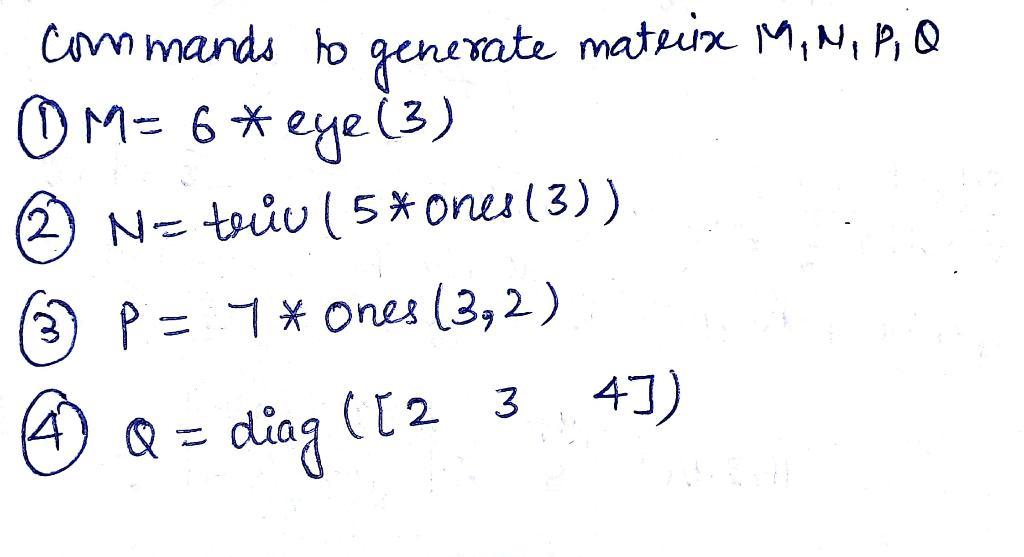 Commands to generate matrix M, N, P, Q
① M = 6 * eye(3)
② N = triu(5*ones(3))
③ P = 7 * ones(3,2)
④ Q = diag([2 3 4])